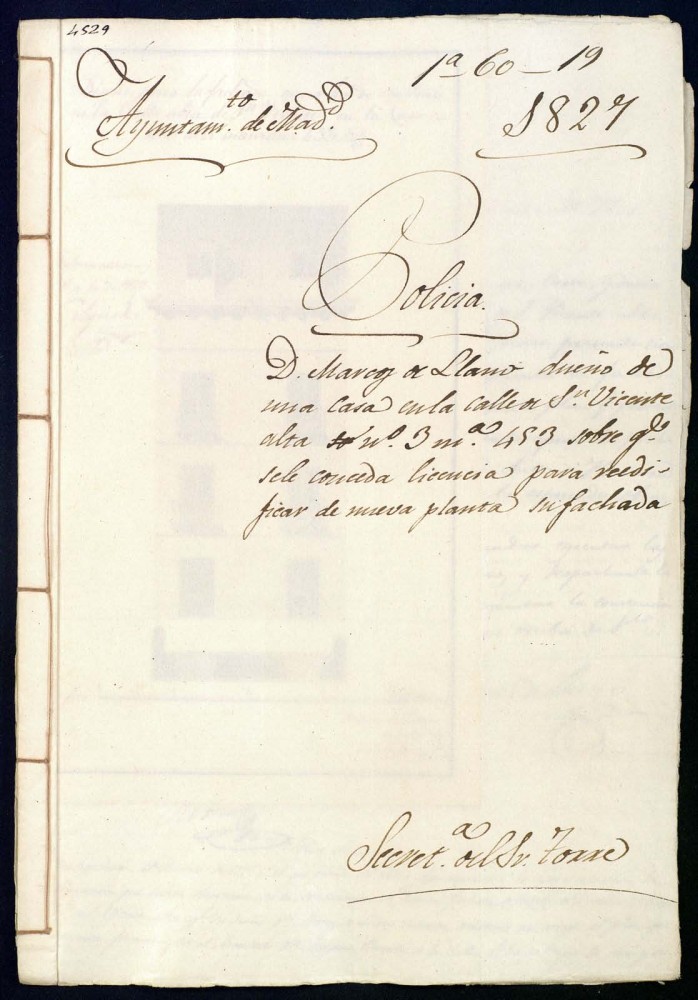 4529
1ª 60-19
Ayuntam.to de Madd.
1827
Policia.
D. Marcos de Llano dueño de
una casa en la calle de Sn. Vicente
alta nº. 3 m.a 453 sobre q.e
sele conceda licencia para reedi-
ficar de nueva planta su fachada
Secret.a del Sr. Torre